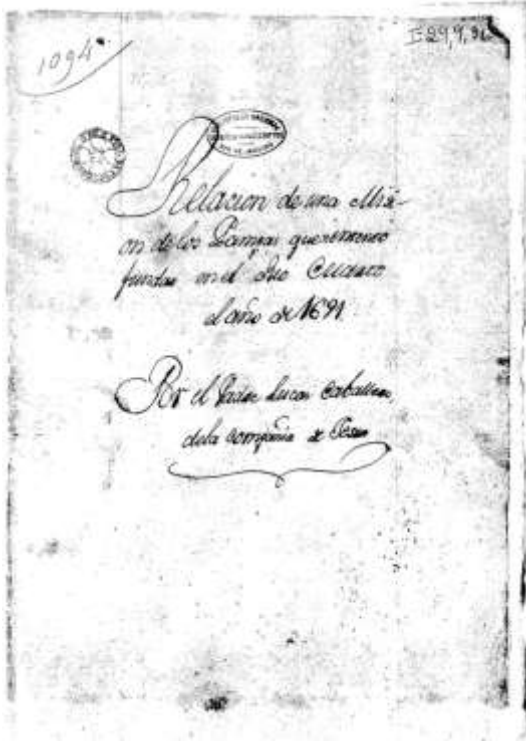 1094
I-29,7,96
Relacion de una Missi-
on de los Pampas que intentó
fundar en el Rio Cuarto
el año de 1691
Por el Padre Lucas Caballero
de la compañia de Jesus